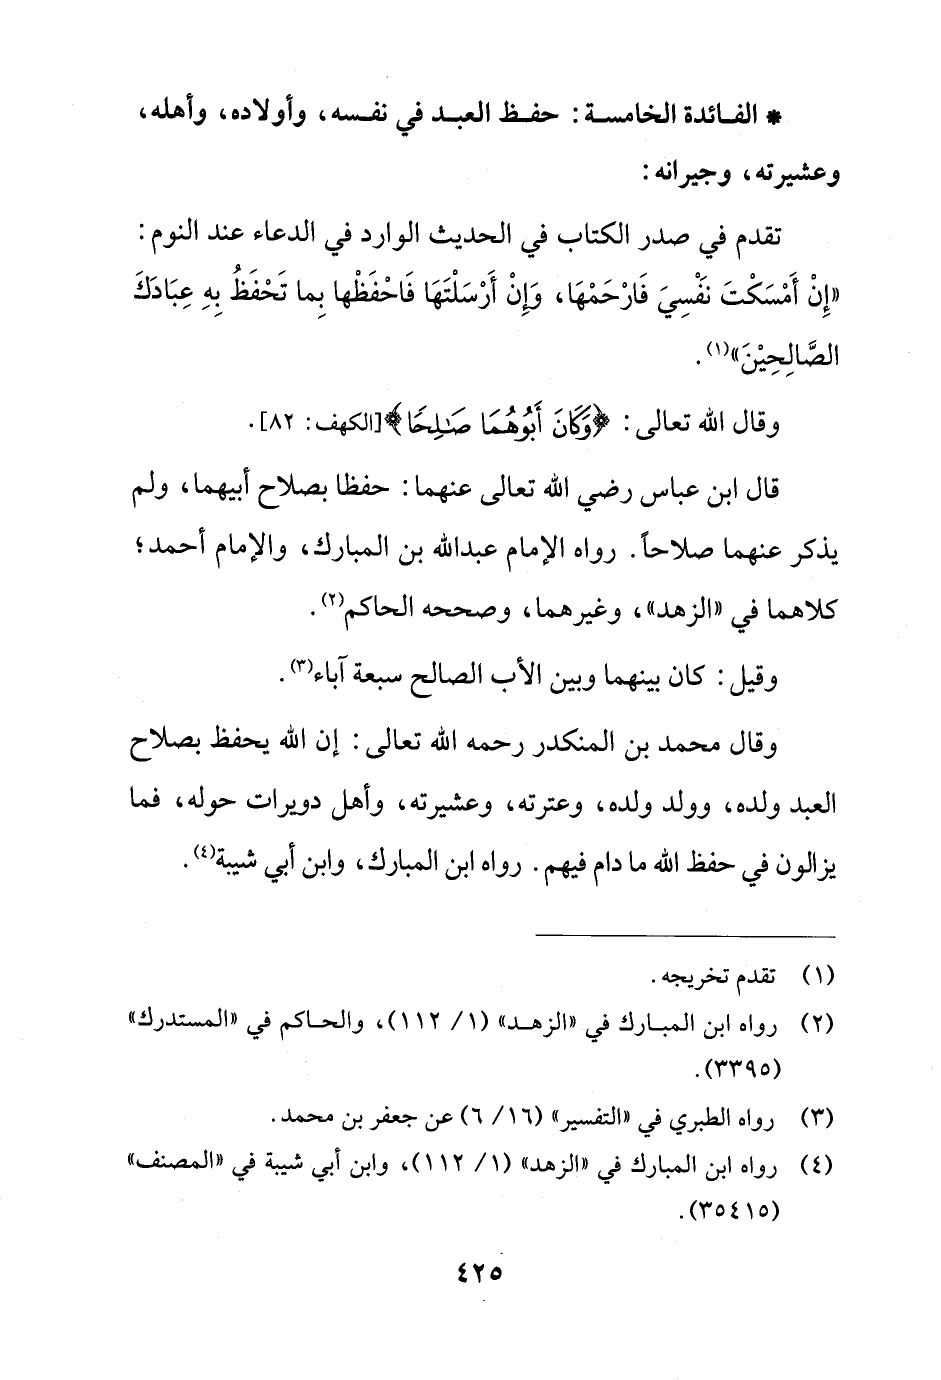 * الفائدة الخامسة: حفظ العبد في نفسه، وأولاده، وأهله،
وعشيرته، وجيرانه:
تقدم في صدر الكتاب في الحديث الوارد في الدعاء عند النوم:
«إِنْ أَمْسَكْتَ نَفْسِيَ فَارْحَمْهَا، وَإِنْ أَرْسَلْتَهَا فَاحْفَظْها بِما تَحْفَظُ بِهِ عِبَادَكَ
الصَّالِحِيْنَ»(١).
وقال الله تعالى: ﴿وَكَانَ أَبُوهُمَا صَٰلِحًا﴾[الكهف: ٨٢].
قال ابن عباس رضي الله تعالى عنهما: حفظا بصلاح أبيهما، ولم
يذكر عنهما صلاحاً. رواه الإمام عبدالله بن المبارك، والإمام أحمد؛
كلاهما في «الزهد»، وغيرهما، وصححه الحاكم(٢).
وقيل: كان بينهما وبين الأب الصالح سبعة آباء(٣).
وقال محمد بن المنكدر رحمه الله تعالى: إن الله يحفظ بصلاح
العبد ولده، وولد ولده، وعترته، وعشيرته، وأهل دويرات حوله، فما
يزالون في حفظ الله ما دام فيهم. رواه ابن المبارك، وابن أبي شيبة(٤).
(١) تقدم تخريجه.
(٢) رواه ابن المبارك في «الزهد» (١/ ١١٢)، والحاكم في «المستدرك»
(٣٣٩٥).
(٣) رواه الطبري في «التفسير» (١٦/ ٦) عن جعفر بن محمد.
(٤) رواه ابن المبارك في «الزهد» (١/ ١١٢)، وابن أبي شيبة في «المصنف»
(٣٥٤١٥).
٤٢٥